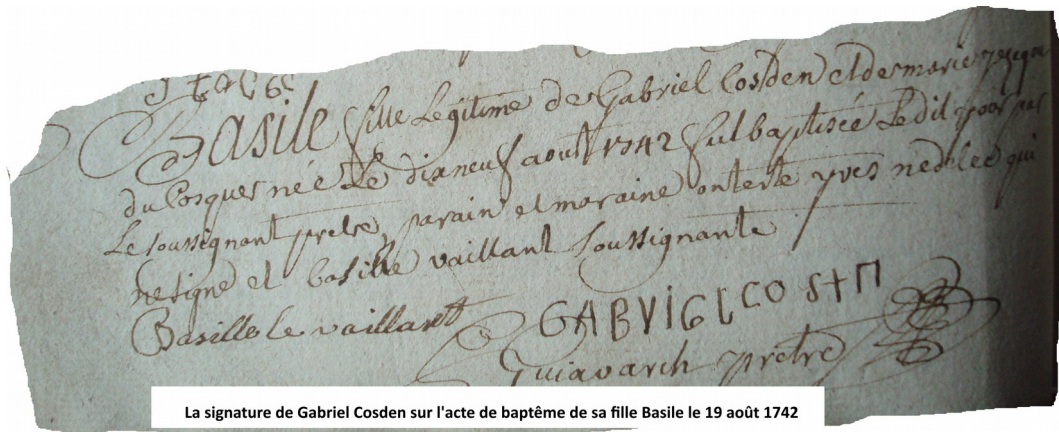 Basile fille Legitime de Gabriel Cosden et de marie
du Cosquer née Le dixneuf aout 1742 fut baptisée Ledit jour par
Le soussignant pretre, parain et maraine ont esté yves nedelec qui
ne signe et basille vaillant soussignante
Basille le vaillant
GABVIGL COSTΠ
Guiavarch pretre
La signature de Gabriel Cosden sur l'acte de baptême de sa fille Basile le 19 août 1742